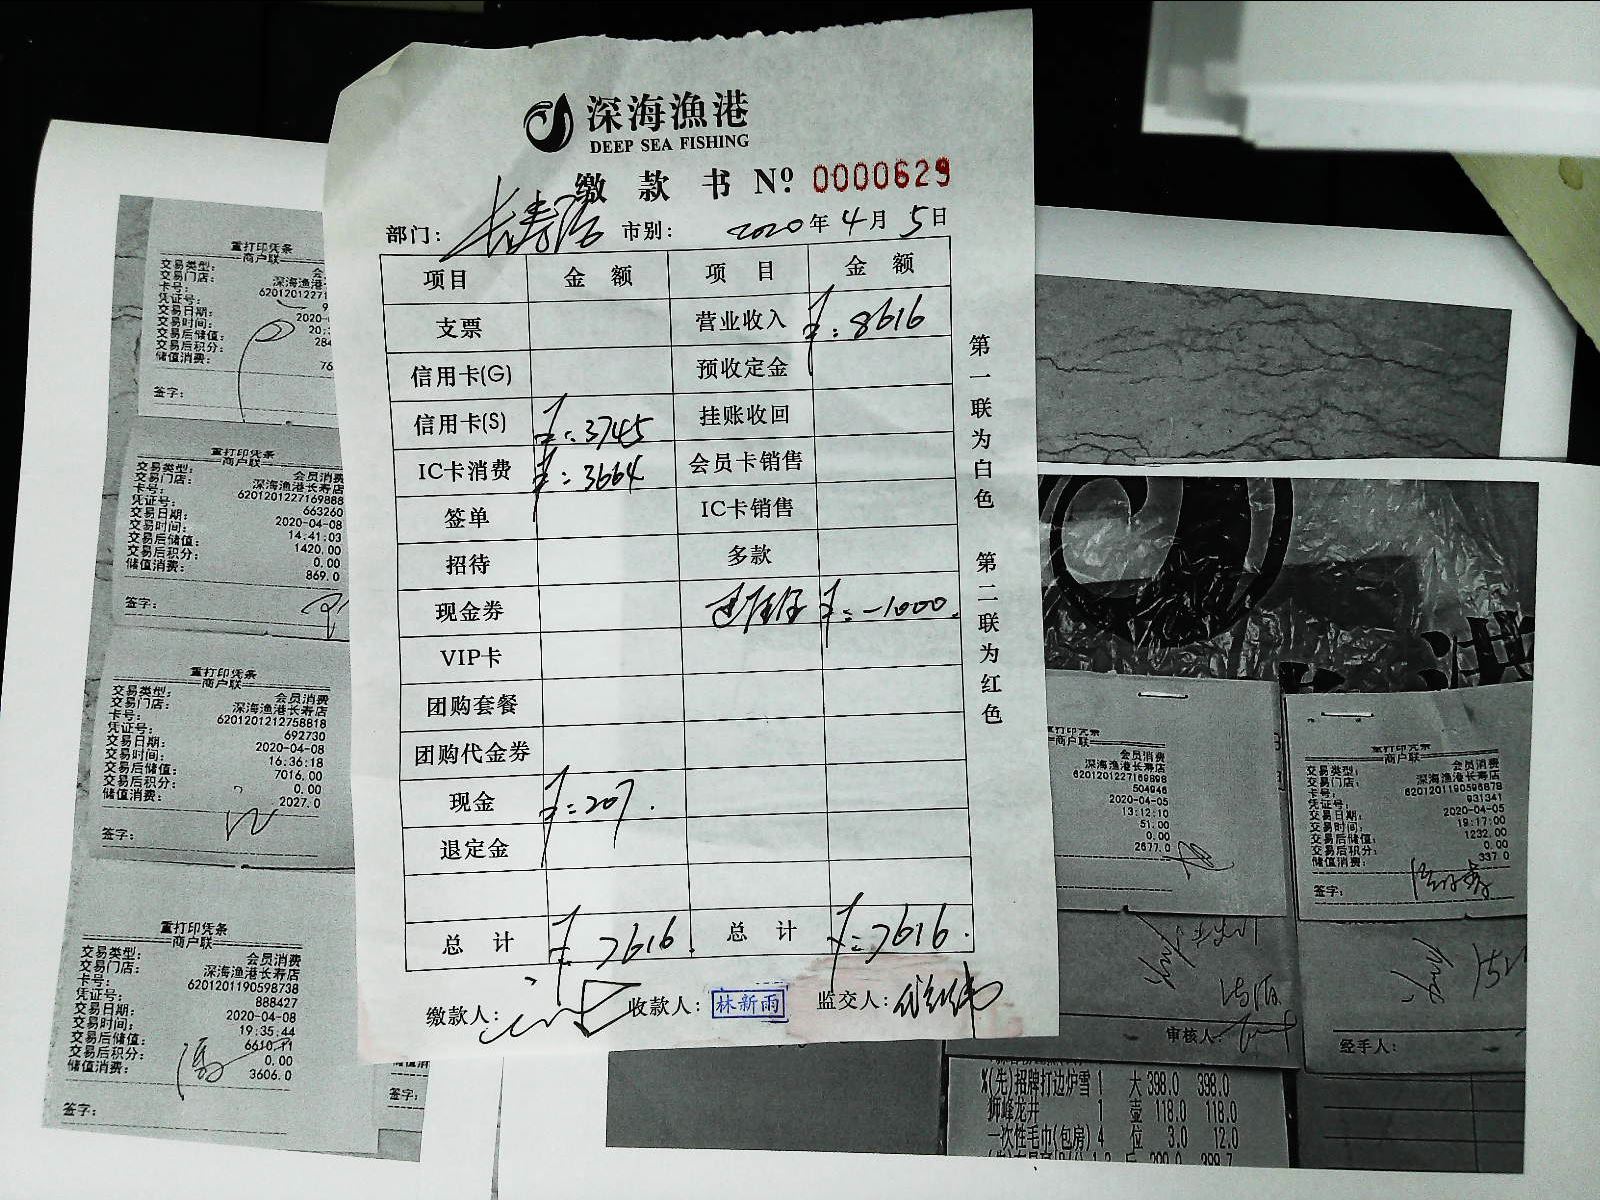 深海漁港
DEEP SEA FISHING
缴款书 Nº 0000629
部门: 长寿店 市别: 2020年4月5日
项目 金额 项目 金额
支票 营业收入 ¥:8616
信用卡(G) 预收定金
信用卡(S) ¥:3745 挂账收回
IC卡消费 ¥:3664 会员卡销售
签单 IC卡销售
招待 多款
现金券 ¥:-1000.
VIP卡
团购套餐
团购代金券
现金 ¥:207.
退定金
总计 ¥7616. 总计 ¥:7616.
缴款人: 收款人: 林新雨 监交人:
第一联为白色 第二联为红色
重打印凭条
商户联
交易类型: 会
交易门店: 深海渔港
卡号: 6201201227
凭证号: 9
交易日期: 2020-
交易时间: 20:
交易后储值: 284
交易后积分:
储值消费: 76
签字:
重打印凭条
商户联
交易类型: 会员消费
交易门店: 深海渔港长寿店
卡号: 6201201227169888
凭证号: 663260
交易日期: 2020-04-08
交易时间: 14:41:03
交易后储值: 1420.00
交易后积分: 0.00
储值消费: 869.0
签字:
重打印凭条
商户联
交易类型: 会员消费
交易门店: 深海渔港长寿店
卡号: 6201201212758818
凭证号: 692730
交易日期: 2020-04-08
交易时间: 16:36:18
交易后储值: 7016.00
交易后积分: 0.00
储值消费: 2027.0
签字:
重打印凭条
商户联
交易类型: 会员消费
交易门店: 深海渔港长寿店
卡号: 6201201190598738
凭证号: 888427
交易日期: 2020-04-08
交易时间: 19:35:44
交易后储值: 6610.11
交易后积分: 0.00
储值消费: 3606.0
签字:
储值消费:
签字:
商户联
会员消费
深海渔港长寿店
6201201227169898
504946
2020-04-05
13:12:10
51.00
0.00
2677.0
重打印凭条
商户联
交易类型: 会员消费
交易门店: 深海渔港长寿店
卡号: 6201201190596878
凭证号: 931341
交易日期: 2020-04-05
交易时间: 19:17:00
交易后储值: 1232.00
交易后积分: 0.00
储值消费: 337.0
签字:
审核人:
经手人:
%(先)招牌打边炉雪 1 大 398.0 398.0
狮峰龙井 1 壶 118.0 118.0
一次性毛巾(包房) 4 位 3.0 12.0